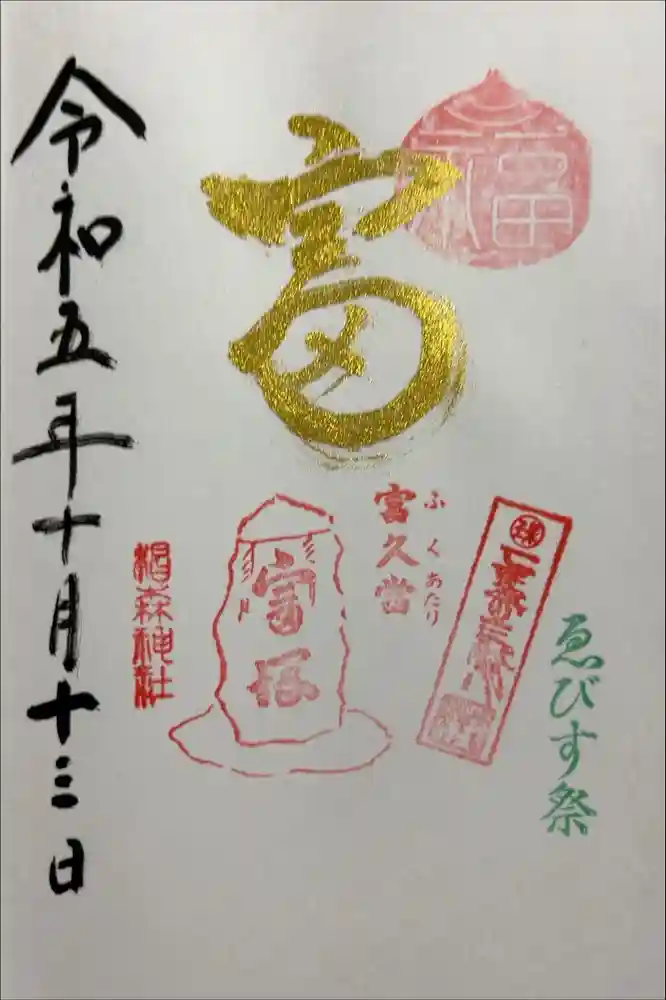 福
富
ゑびす祭
ふくあたり
富久當
富塚
椙森神社
令和五年十月十三日